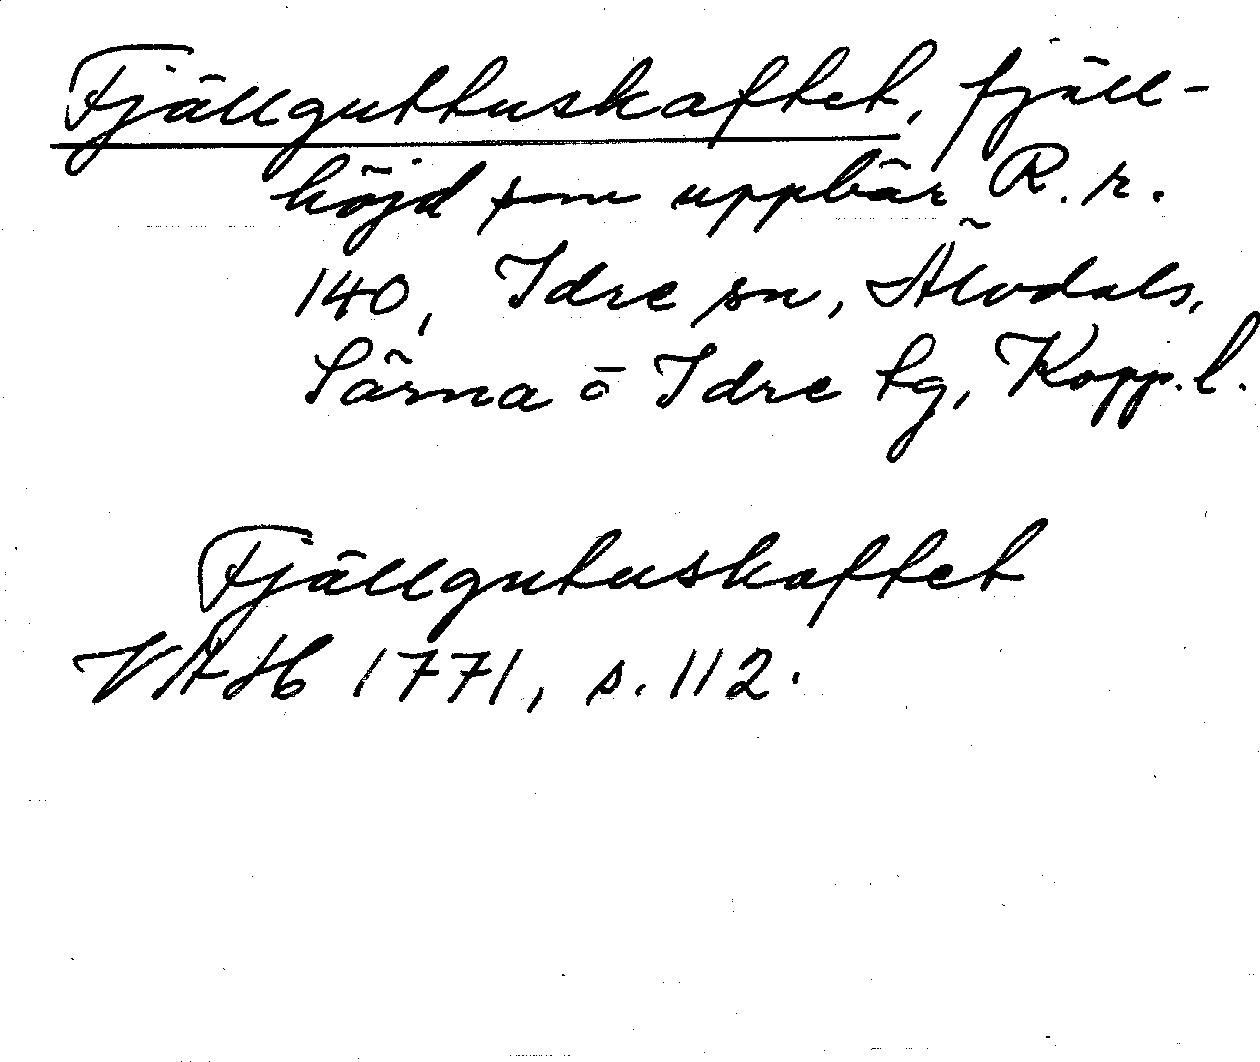 Fjällguttuskaftet, fjäll-
höjd som uppbär R. r.
140, Idre sn, Älvdals,
Särna o Idre tg, Kopp. l.
Fjällgutuskaftet
VAH 1771, s. 112.